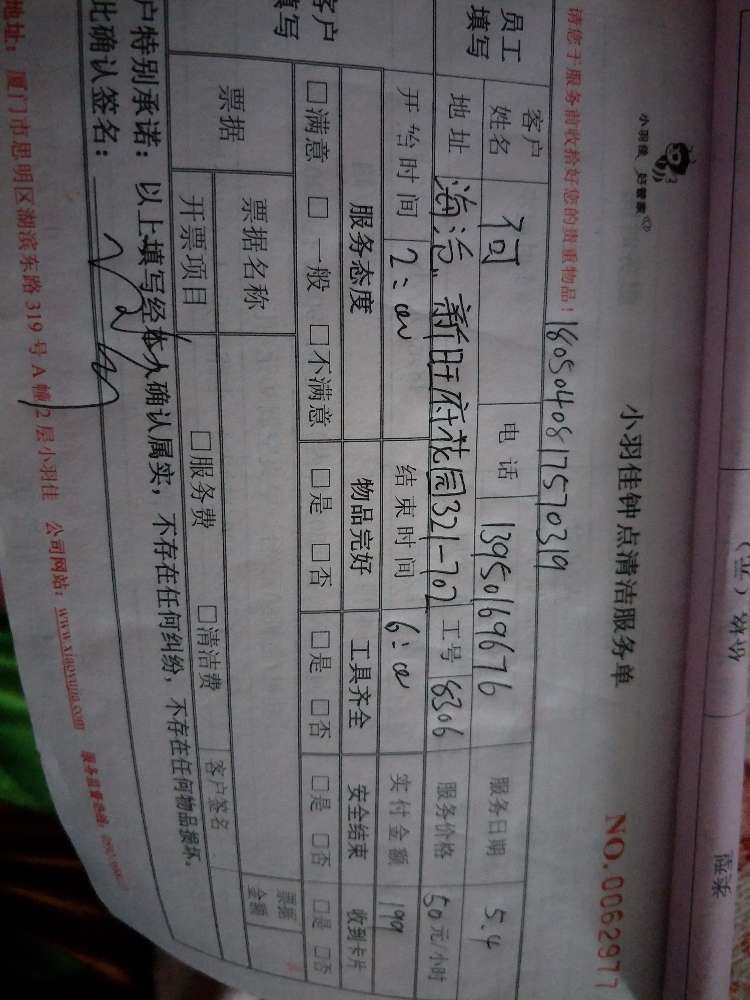 小羽佳 好管家
小羽佳钟点清洁服务单
NO.0062977
请您于服务前收拾好您的贵重物品！
1805040817570319
员工填写
客户姓名 何 电话 13950169676 服务日期 5.4
地址 海沧 新旺府花园321-702 工号 8306 服务价格 50元/小时
开始时间 2:00 结束时间 6:00 实付金额 199
客户填写
服务态度 物品完好 工具齐全 安全结束 收到卡片
□满意 □一般 □不满意 □是 □否 □是 □否 □是 □否 □是 □否
票据 票据名称 票据金额
开票项目 □服务费 □清洁费 客户签名
户特别承诺：以上填写经本人确认属实，不存在任何纠纷，不存在任何物品损坏。
此确认签名：
地址：厦门市思明区湖滨东路319号A幢2层小羽佳 公司网站：www.xiaoyujia.com 服务监督热线：